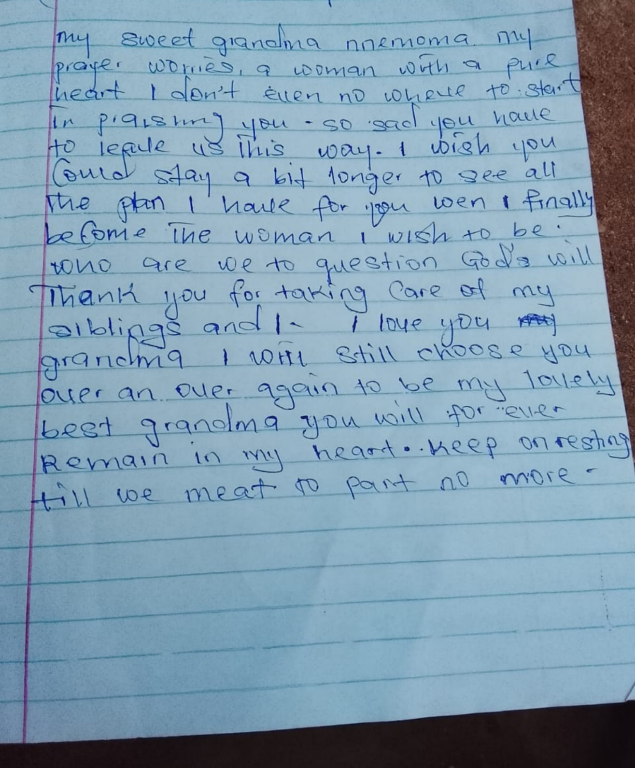 my sweet grandma nnemoma my
prayer worries, a woman with a pure
heart I don't even no where to start
in praising you - so sad you have
to leave us this way. I wish you
Could stay a bit longer to see all
The plan I have for you wen I finally
become The woman I wish to be.
who are we to question God's will
Thank you for taking Care of my
siblings and I - I love you
grandma I will still choose you
over an over again to be my lovely
best grandma you will for ever
Remain in my heart. keep on resting
till we meat to part no more -